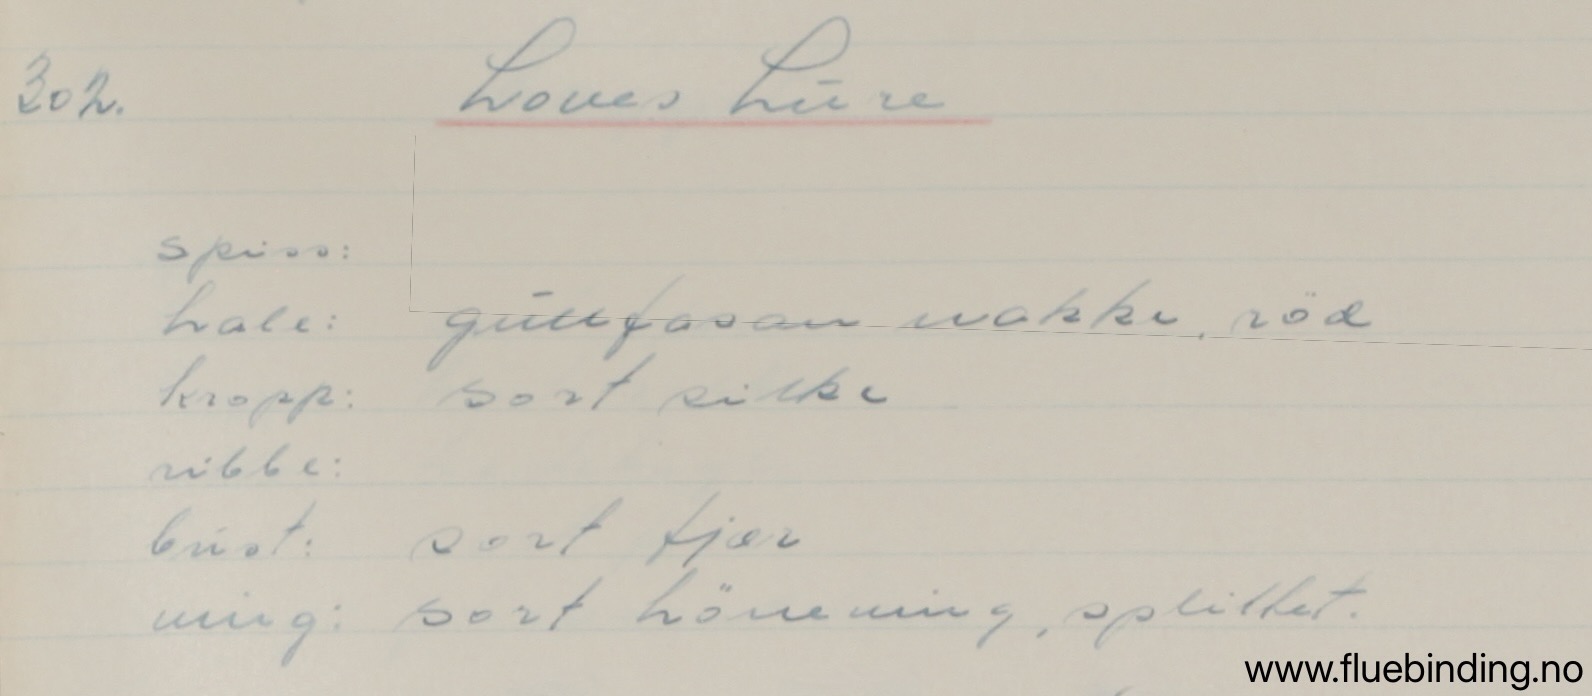 302.
Loves Lure
spiss:
hale: gullfasan nakke, röd
kropp: sort silke
ribbe:
brist: sort fjær
wing: sort hönewing, splittet.
www.fluebinding.no